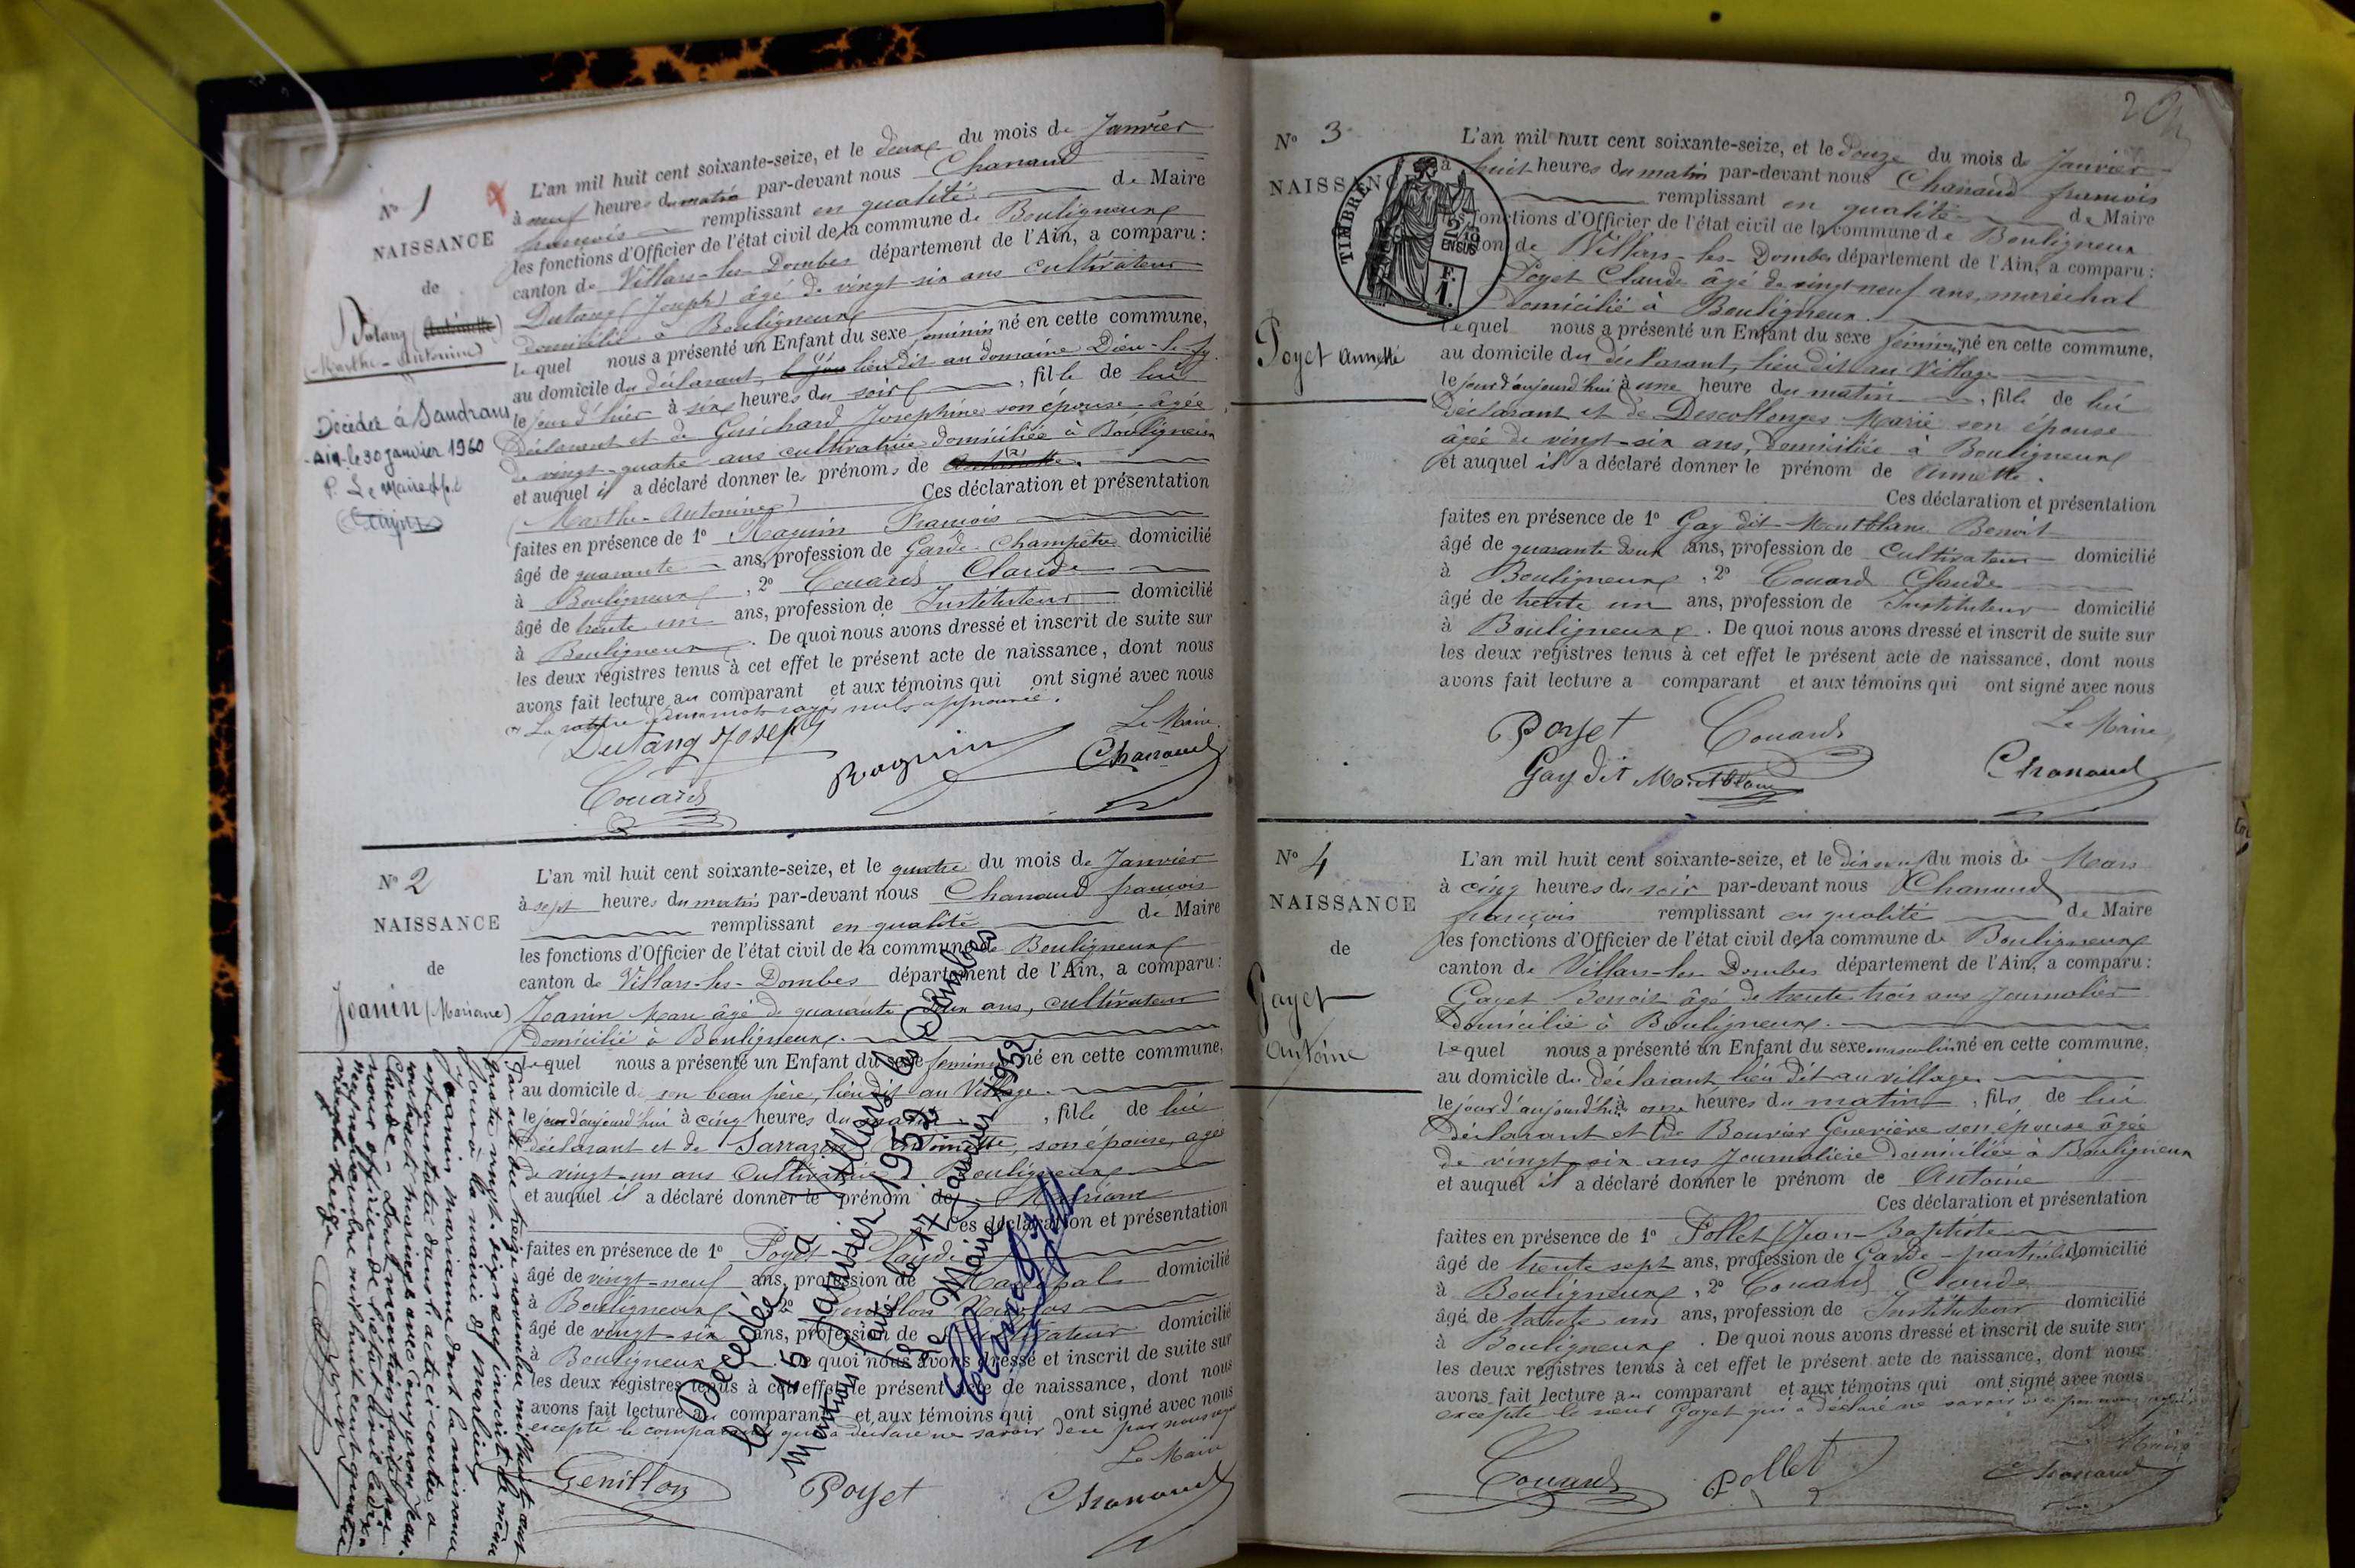 N° 1
NAISSANCE
de
Dutang (Antoinette)
(Marthe-Antonine)
Décédée à Sandrans
-Ain- le 30 janvier 1960
P. Le Maire
L'an mil huit cent soixante-seize, et le deux du mois de Janvier
à neuf heures du matin par-devant nous Chanaud
françois remplissant en qualité de Maire
les fonctions d'Officier de l'état civil de la commune de Bouligneux
canton de Villars-les-Dombes département de l'Ain, a comparu :
Dutang (Joseph) âgé de vingt-six ans cultivateur
domicilié à Bouligneux
lequel nous a présenté un Enfant du sexe féminin né en cette commune,
au domicile du déclarant, lieu dit au domaine Dieu-le-fy
le jour d'hier à six heures du soir, fille de lui
Déclarant et de Guichard Josephine son épouse âgée
de vingt-quatre ans cultivatrice domiciliée à Bouligneux
et auquel il a déclaré donner les prénoms de Antoinette.
(Marthe-Antonine) Ces déclaration et présentation
faites en présence de 1° Raguin François
âgé de quarante ans, profession de Garde-Champêtre domicilié
à Bouligneux, 2° Couard Claude
âgé de trente un ans, profession de Instituteur domicilié
à Bouligneux. De quoi nous avons dressé et inscrit de suite sur
les deux registres tenus à cet effet le présent acte de naissance, dont nous
avons fait lecture au comparant et aux témoins qui ont signé avec nous
mots rayés nuls approuvée.
Dutang Joseph
Raguin
Le Maire
Chanaud
Couard
N° 2
NAISSANCE
de
Jeanin (Mariane)
L'an mil huit cent soixante-seize, et le quatre du mois de Janvier
à sept heures du matin par-devant nous Chanaud françois
remplissant en qualité de Maire
les fonctions d'Officier de l'état civil de la commune de Bouligneux
canton de Villars-les-Dombes département de l'Ain, a comparu :
Jeanin Marc âgé de quarante deux ans, cultivateur
domicilié à Bouligneux.
lequel nous a présenté un Enfant du sexe féminin né en cette commune,
au domicile de son beau père, lieu dit au Village
le jour d'aujourd'hui à cinq heures du matin, fille de lui
Déclarant et de Sarrazin Antoinette, son épouse, âgée
de vingt-un ans cultivatrice à Bouligneux
et auquel il a déclaré donner le prénom de Mariane
Ces déclaration et présentation
faites en présence de 1° Poyet Claude
âgé de vingt-neuf ans, profession de Maréchal domicilié
à Bouligneux 2° Genillon Nicolas
âgé de vingt-six ans, profession de cultivateur domicilié
à Bouligneux. De quoi nous avons dressé et inscrit de suite sur
les deux registres tenus à cet effet le présent acte de naissance, dont nous
avons fait lecture au comparant et aux témoins qui ont signé avec nous
excepté le comparant qui a déclaré ne savoir de ce par nous requis
Le Maire
Genillon
Poyet
Chanaud
Par acte du treize novembre mil huit cent
quatre vingt-seize inscrit le même
jour à la mairie de Marlieux
Jeanin Marianne dont la naissance
est constatée dans l'acte ci-contre a
contracté mariage avec Jean-
Claude. Dont mention faite par
nous officier de l'état civil le dix-
mil huit cent quatre
vingt-seize
Décédée à Villars les Dombes
le 15 Janvier 1952
Mention faite le 17 Janvier 1952
Le Maire
N° 3
NAISSANCE
Poyet Annette
TIMBRE
2/10
EN SUS
F.
1.
L'an mil huit cent soixante-seize, et le douze du mois de Janvier
à huit heures du matin par-devant nous Chanaud françois
remplissant en qualité de Maire
les fonctions d'Officier de l'état civil de la commune de Bouligneux
canton de Villars-les-Dombes département de l'Ain, a comparu :
Poyet Claude âgé de vingt-neuf ans, maréchal
domicilié à Bouligneux.
lequel nous a présenté un Enfant du sexe féminin né en cette commune,
au domicile du déclarant, lieu dit au Village
le jour d'aujourd'hui à une heure du matin, fille de lui
déclarant et de Descollonges Marie son épouse
âgée de vingt-six ans, domiciliée à Bouligneux
et auquel il a déclaré donner le prénom de Annette.
Ces déclaration et présentation
faites en présence de 1° Gay dit Montblanc Benoit
âgé de quarante deux ans, profession de cultivateur domicilié
à Bouligneux, 2° Couard Claude
âgé de trente un ans, profession de Instituteur domicilié
à Bouligneux. De quoi nous avons dressé et inscrit de suite sur
les deux registres tenus à cet effet le présent acte de naissance, dont nous
avons fait lecture a comparant et aux témoins qui ont signé avec nous
Poyet
Couard
Le Maire
Gay dit Montblanc
Chanaud
N° 4
NAISSANCE
de
Gayet
Antoine
L'an mil huit cent soixante-seize, et le dix neuf du mois de Mars
à cinq heures du soir par-devant nous Chanaud
françois remplissant en qualité de Maire
les fonctions d'Officier de l'état civil de la commune de Bouligneux
canton de Villars-les-Dombes département de l'Ain, a comparu :
Gayet Benoit âgé de trente trois ans Journalier
domicilié à Bouligneux.
lequel nous a présenté un Enfant du sexe masculin né en cette commune,
au domicile du déclarant, lieu dit au village
le jour d'aujourd'hui à onze heures du matin, fils de lui
déclarant et de Bouvier Geneviève son épouse âgée
de vingt-six ans Journalière domiciliée à Bouligneux
et auquel il a déclaré donner le prénom de Antoine
Ces déclaration et présentation
faites en présence de 1° Pollet Jean-Baptiste
âgé de trente sept ans, profession de Garde-particulier domicilié
à Bouligneux, 2° Couard Claude
âgé de trente un ans, profession de Instituteur domicilié
à Bouligneux. De quoi nous avons dressé et inscrit de suite sur
les deux registres tenus à cet effet le présent acte de naissance, dont nous
avons fait lecture au comparant et aux témoins qui ont signé avec nous
excepté le sieur Gayet qui a déclaré ne savoir de ce par nous requis
Le Maire
Couard
Pollet
Chanaud